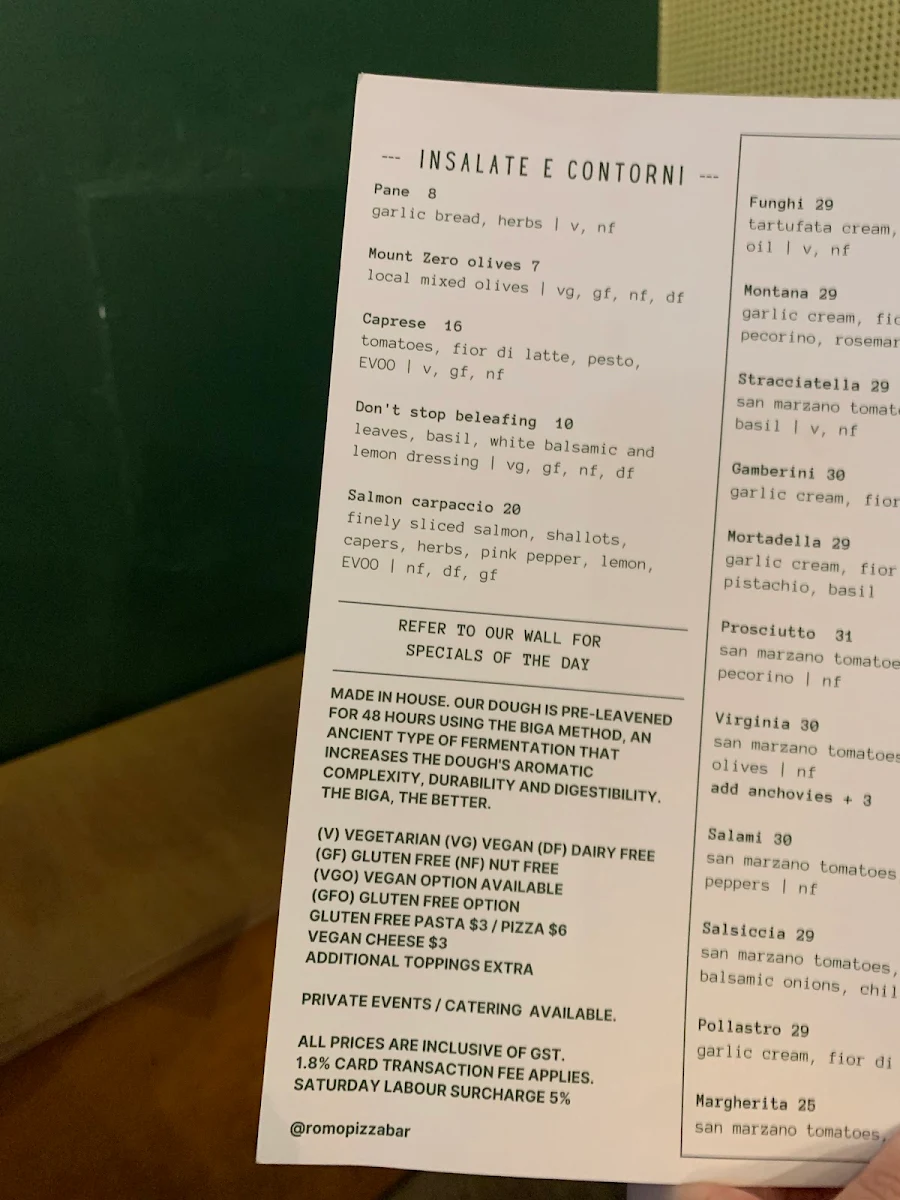 --- INSALATE E CONTORNI ---
Pane 8
garlic bread, herbs | v, nf
Mount Zero olives 7
local mixed olives | vg, gf, nf, df
Caprese 16
tomatoes, fior di latte, pesto,
EVOO | v, gf, nf
Don't stop beleafing 10
leaves, basil, white balsamic and
lemon dressing | vg, gf, nf, df
Salmon carpaccio 20
finely sliced salmon, shallots,
capers, herbs, pink pepper, lemon,
EVOO | nf, df, gf
REFER TO OUR WALL FOR
SPECIALS OF THE DAY
MADE IN HOUSE. OUR DOUGH IS PRE-LEAVENED
FOR 48 HOURS USING THE BIGA METHOD, AN
ANCIENT TYPE OF FERMENTATION THAT
INCREASES THE DOUGH'S AROMATIC
COMPLEXITY, DURABILITY AND DIGESTIBILITY.
THE BIGA, THE BETTER.
(V) VEGETARIAN (VG) VEGAN (DF) DAIRY FREE
(GF) GLUTEN FREE (NF) NUT FREE
(VGO) VEGAN OPTION AVAILABLE
(GFO) GLUTEN FREE OPTION
GLUTEN FREE PASTA $3 / PIZZA $6
VEGAN CHEESE $3
ADDITIONAL TOPPINGS EXTRA
PRIVATE EVENTS / CATERING AVAILABLE.
ALL PRICES ARE INCLUSIVE OF GST.
1.8% CARD TRANSACTION FEE APPLIES.
SATURDAY LABOUR SURCHARGE 5%
@romopizzabar
Funghi 29
tartufata cream,
oil | v, nf
Montana 29
garlic cream,
pecorino,
Stracciatella 29
san marzano
basil | v, nf
Gamberini 30
garlic cream, fior
Mortadella 29
garlic cream, fior
pistachio, basil
Prosciutto 31
san marzano
pecorino | nf
Virginia 30
san marzano tomatoes
olives | nf
add anchovies + 3
Salami 30
san marzano tomatoes
peppers | nf
Salsiccia 29
san marzano tomatoes,
balsamic onions,
Pollastro 29
garlic cream, fior di
Margherita 25
san marzano tomatoes,